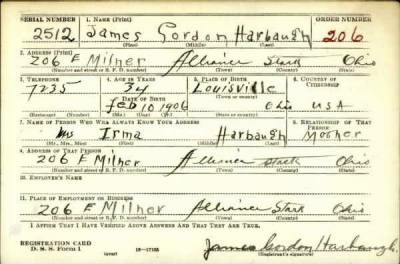 SERIAL NUMBER 1. NAME (Print)
2512 James Gordon Harbaugh 206
(First) (Middle) (Last)
2. ADDRESS (Print)
206 E Milner Alliance Stark Ohio
(Number and street or R. F. D. number) (Town) (County) (State)
3. TELEPHONE 4. AGE IN YEARS 5. PLACE OF BIRTH 6. COUNTRY OF CITIZENSHIP
7735 34 Louisville
DATE OF BIRTH (Town or county)
Feb 10 1906 Ohio USA
(Exchange) (Number) (Mo.) (Day) (Yr.) (State or country)
7. NAME OF PERSON WHO WILL ALWAYS KNOW YOUR ADDRESS 8. RELATIONSHIP OF THAT PERSON
Mrs Irma Harbaugh Mother
(Mr., Mrs., Miss) (First) (Middle) (Last)
9. ADDRESS OF THAT PERSON
206 E Milner Alliance Stark Ohio
(Number and street or R. F. D. number) (Town) (County) (State)
10. EMPLOYER'S NAME
11. PLACE OF EMPLOYMENT OR BUSINESS
206 E Milner Alliance Stark Ohio
(Number and street or R. F. D. number) (Town) (County) (State)
I AFFIRM THAT I HAVE VERIFIED ABOVE ANSWERS AND THAT THEY ARE TRUE.
REGISTRATION CARD
D. S. S. Form 1 (over) 16—17105 James Gordon Harbaugh
(Registrant's signature)